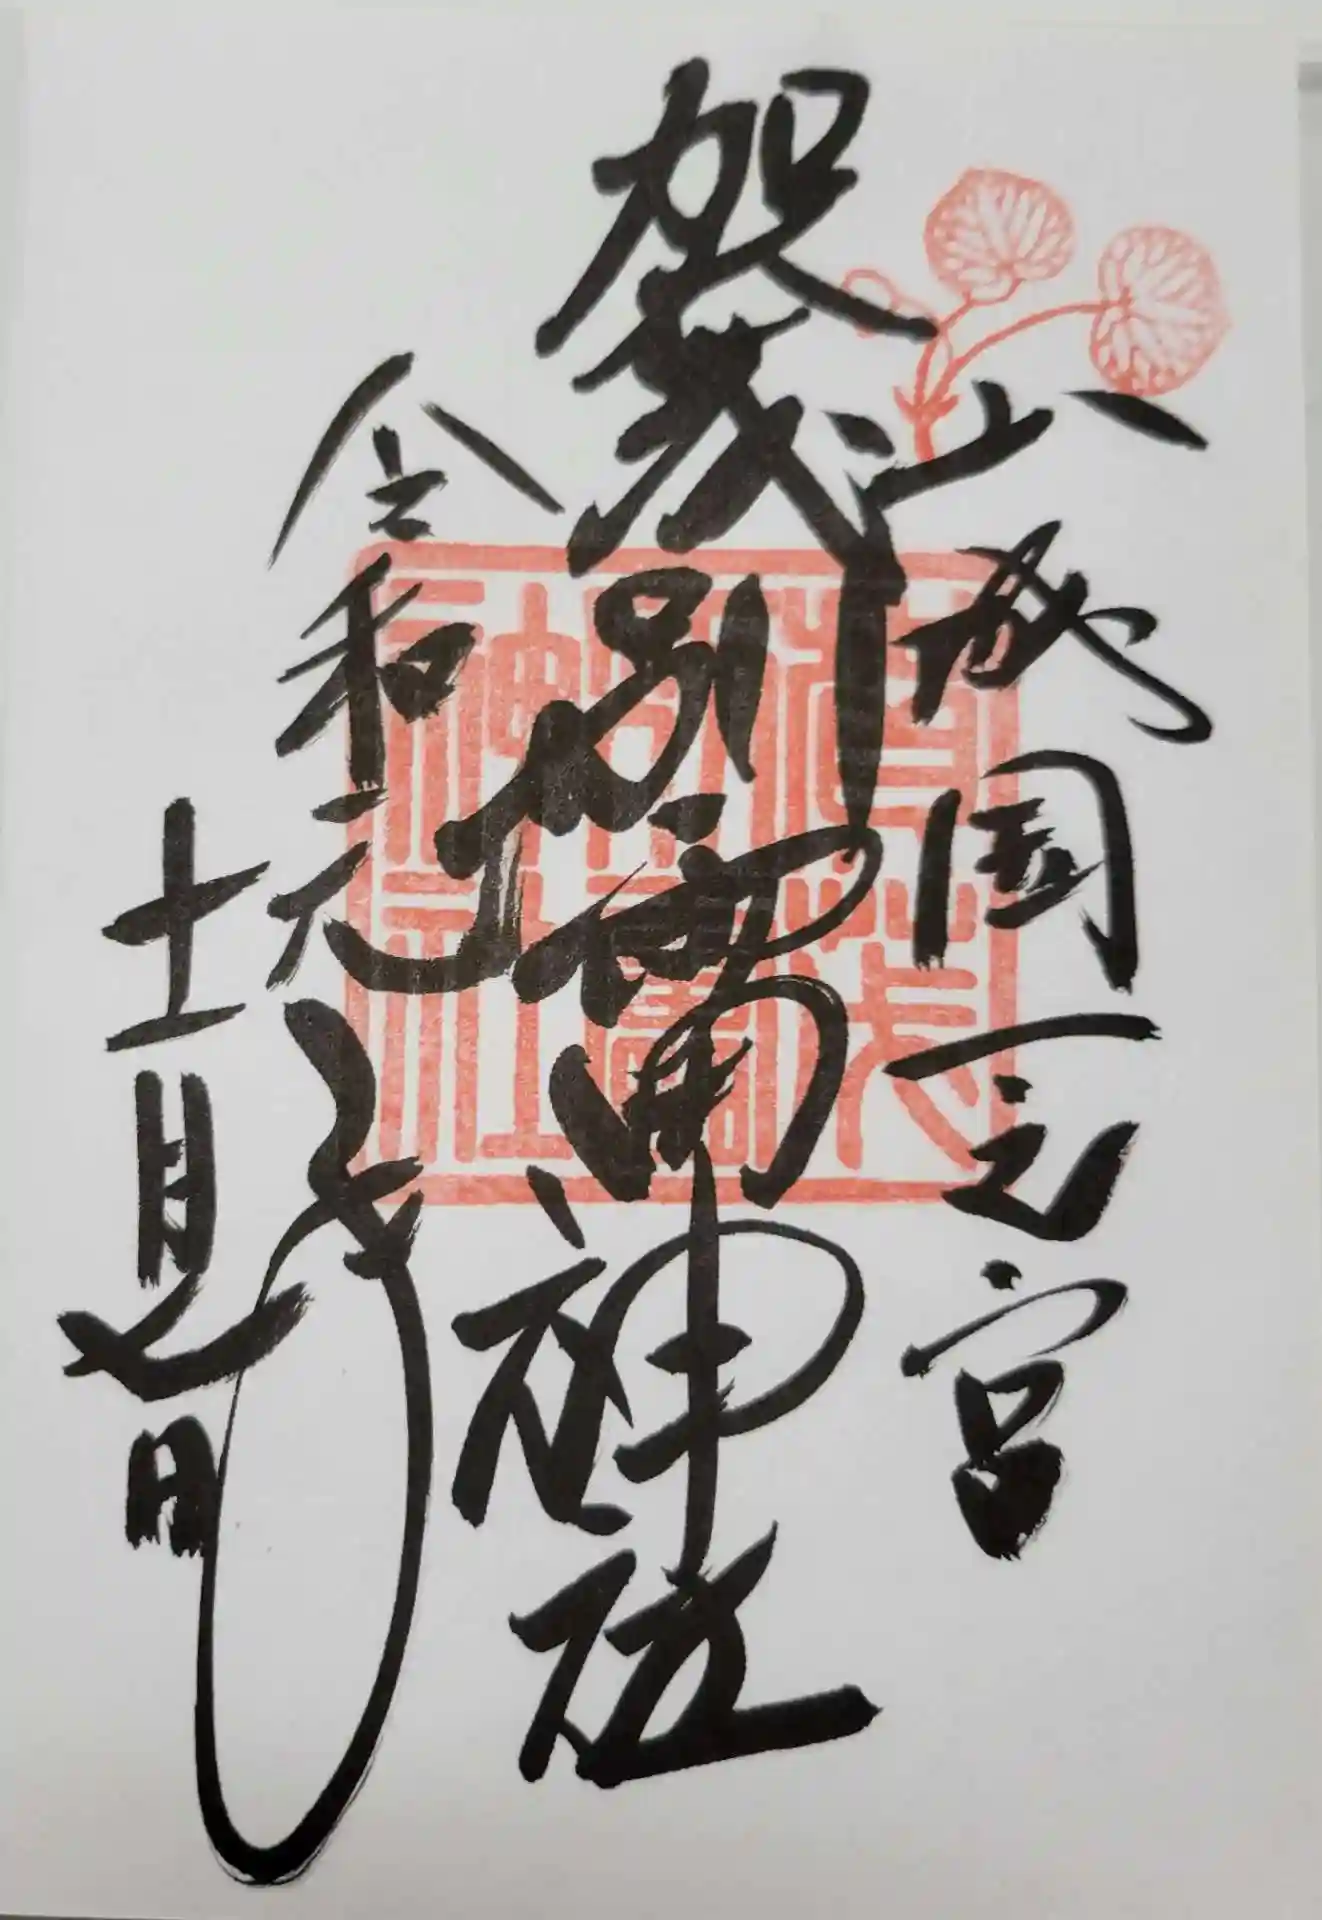 山城国一之宮
賀茂別雷神社
賀茂別雷神社
令和元年
十一月七日